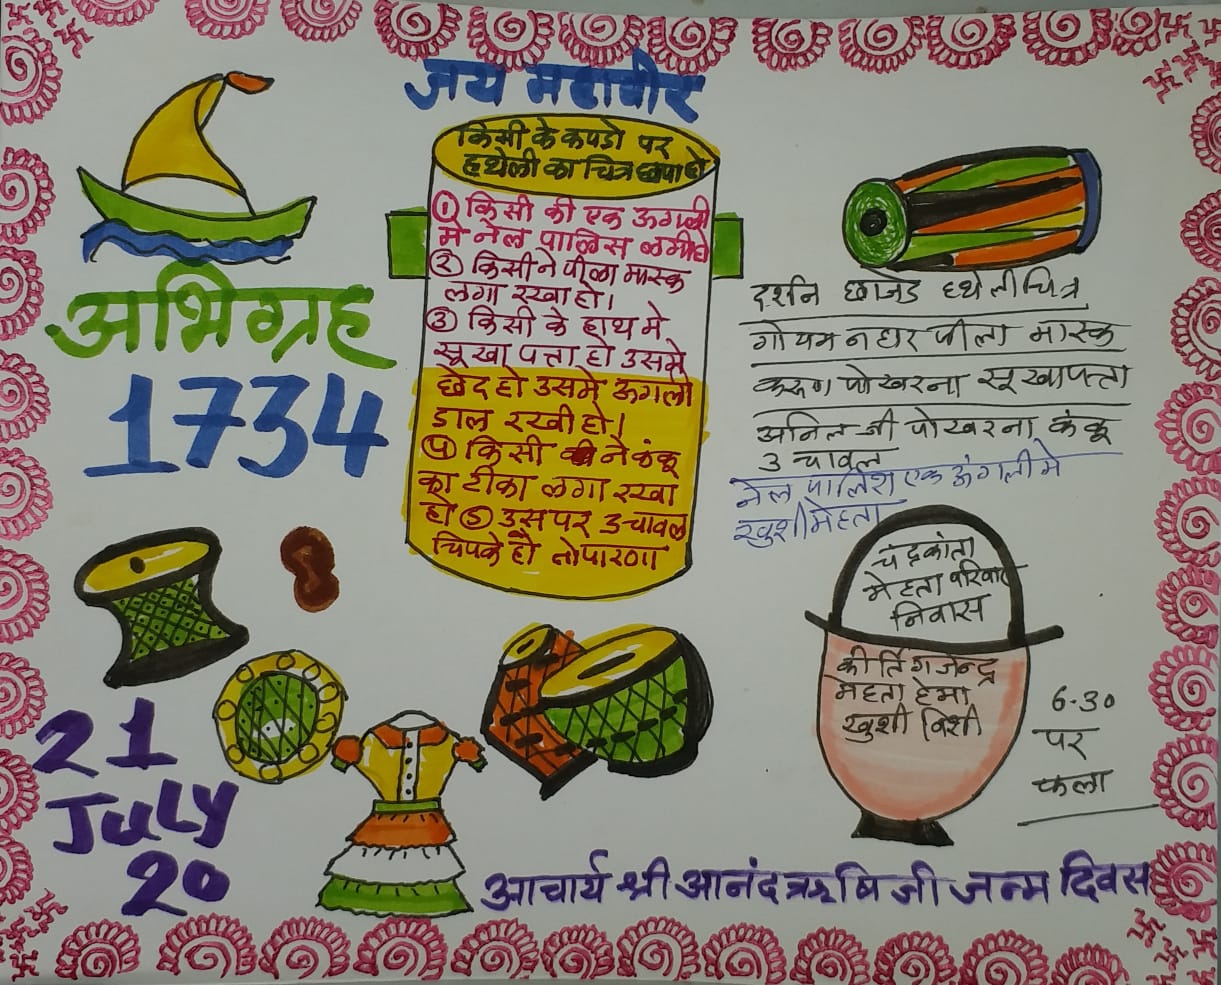 जय महावीर
किसी के कपडो पर
हथेली का चित्र छपा हो
① किसी की एक ऊगली
मे नेल पालिस लगी हो
② किसी ने पीला मास्क
लगा रखा हो।
③ किसी के हाथ मे
सूखा पत्ता हो उसमे
छेद हो उसमे ऊगली
डाल रखी हो।
④ किसी ने कंकू
का टीका लगा रखा
हो ⑤ उस पर 3 चावल
चिपके हो तो पारणा
अभिग्रह
1734
दर्शन छाजेड हथेली चित्र
गोयम नहार पीला मास्क
करूण पोखरना सूखा पत्ता
अनिल जी पोखरना कंकू
3 चावल
नेल पालिश एक ऊंगली मे
खुशी मेहता
चंद्रकांता
मेहता परिवार
निवास
कीर्ति गजेन्द्र
मेहता हेमा
खुशी विशी
6-30
पर
फला
21
July
20
आचार्य श्री आनंदऋषि जी जन्म दिवस